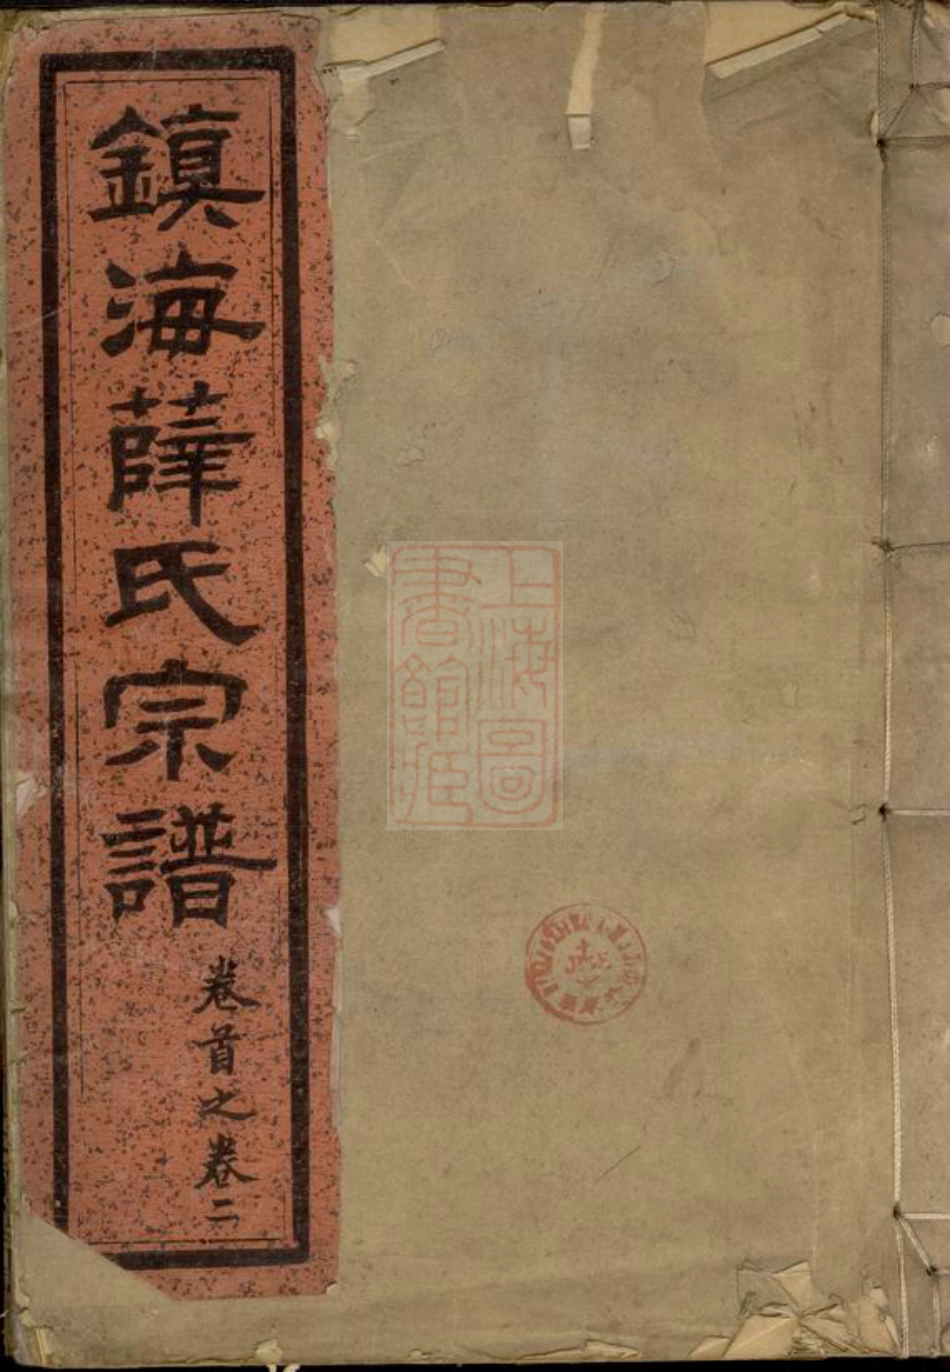 鎮海薛氏宗譜
卷首之卷二
上海圖
書館藏